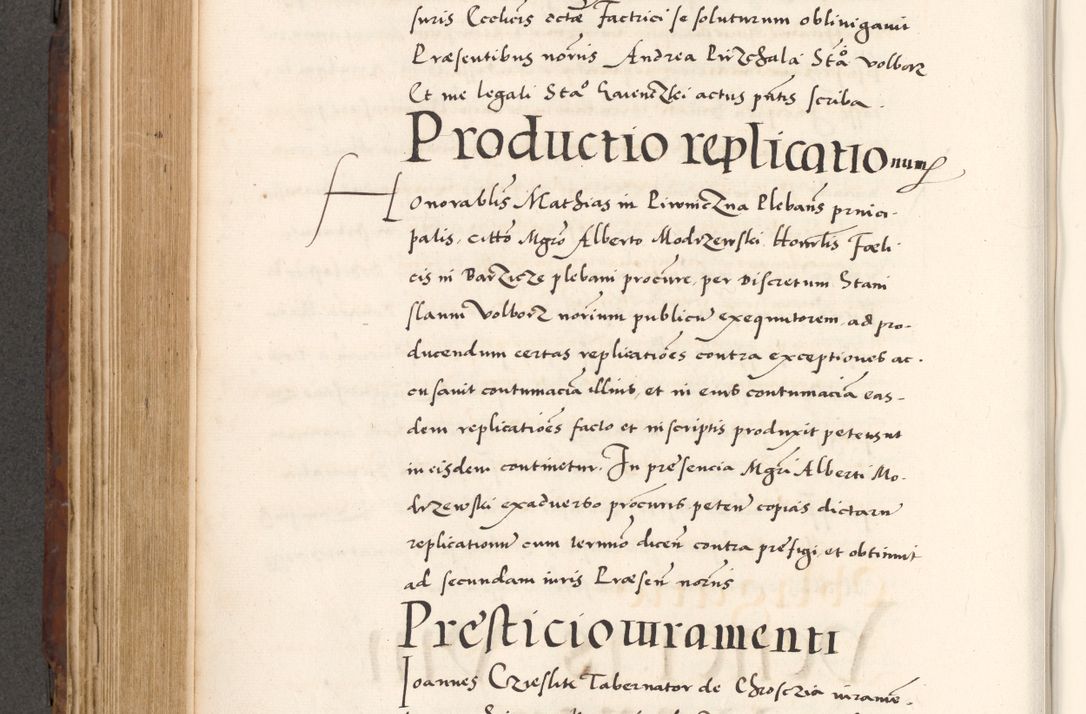 iuris Eccliẽs octã Factrici se soluturum obliuigauit
Præsentibus norıis Andrea Pirzchala Stã° Volborz
Et me legali Sta° Gauenczki actus pñtis scriba.
Productio replicationum
Honorablis Mathias in Piwniczna Plebañs princi-
palis, citto Mgrõ Alberto Modrzewski, Honrlis Fœli-
cis in Barzicze plebani procure, per Discretum Stani
slaum Volborz norium publicũ exequutorem ad pro-
ducendum certas replicatiões contra exceptiones ac-
cusauit contumaciã illius, et in eius contumaciã eas-
dem replicatiões facto et in scriptis produxit petens ut
in eisdem continetur. In presencia Mgri Alberti Mo-
drzewski ex aduerso procuris peteñ copias dictarũ
replicationũ cum termıno diceñ contra prefigi, et obtinuit
ad secundam iuris Præseñ norıis
Presticio iuramenti
Ioannes Czieslik Tabernator de Chrosczia iuramẽ-